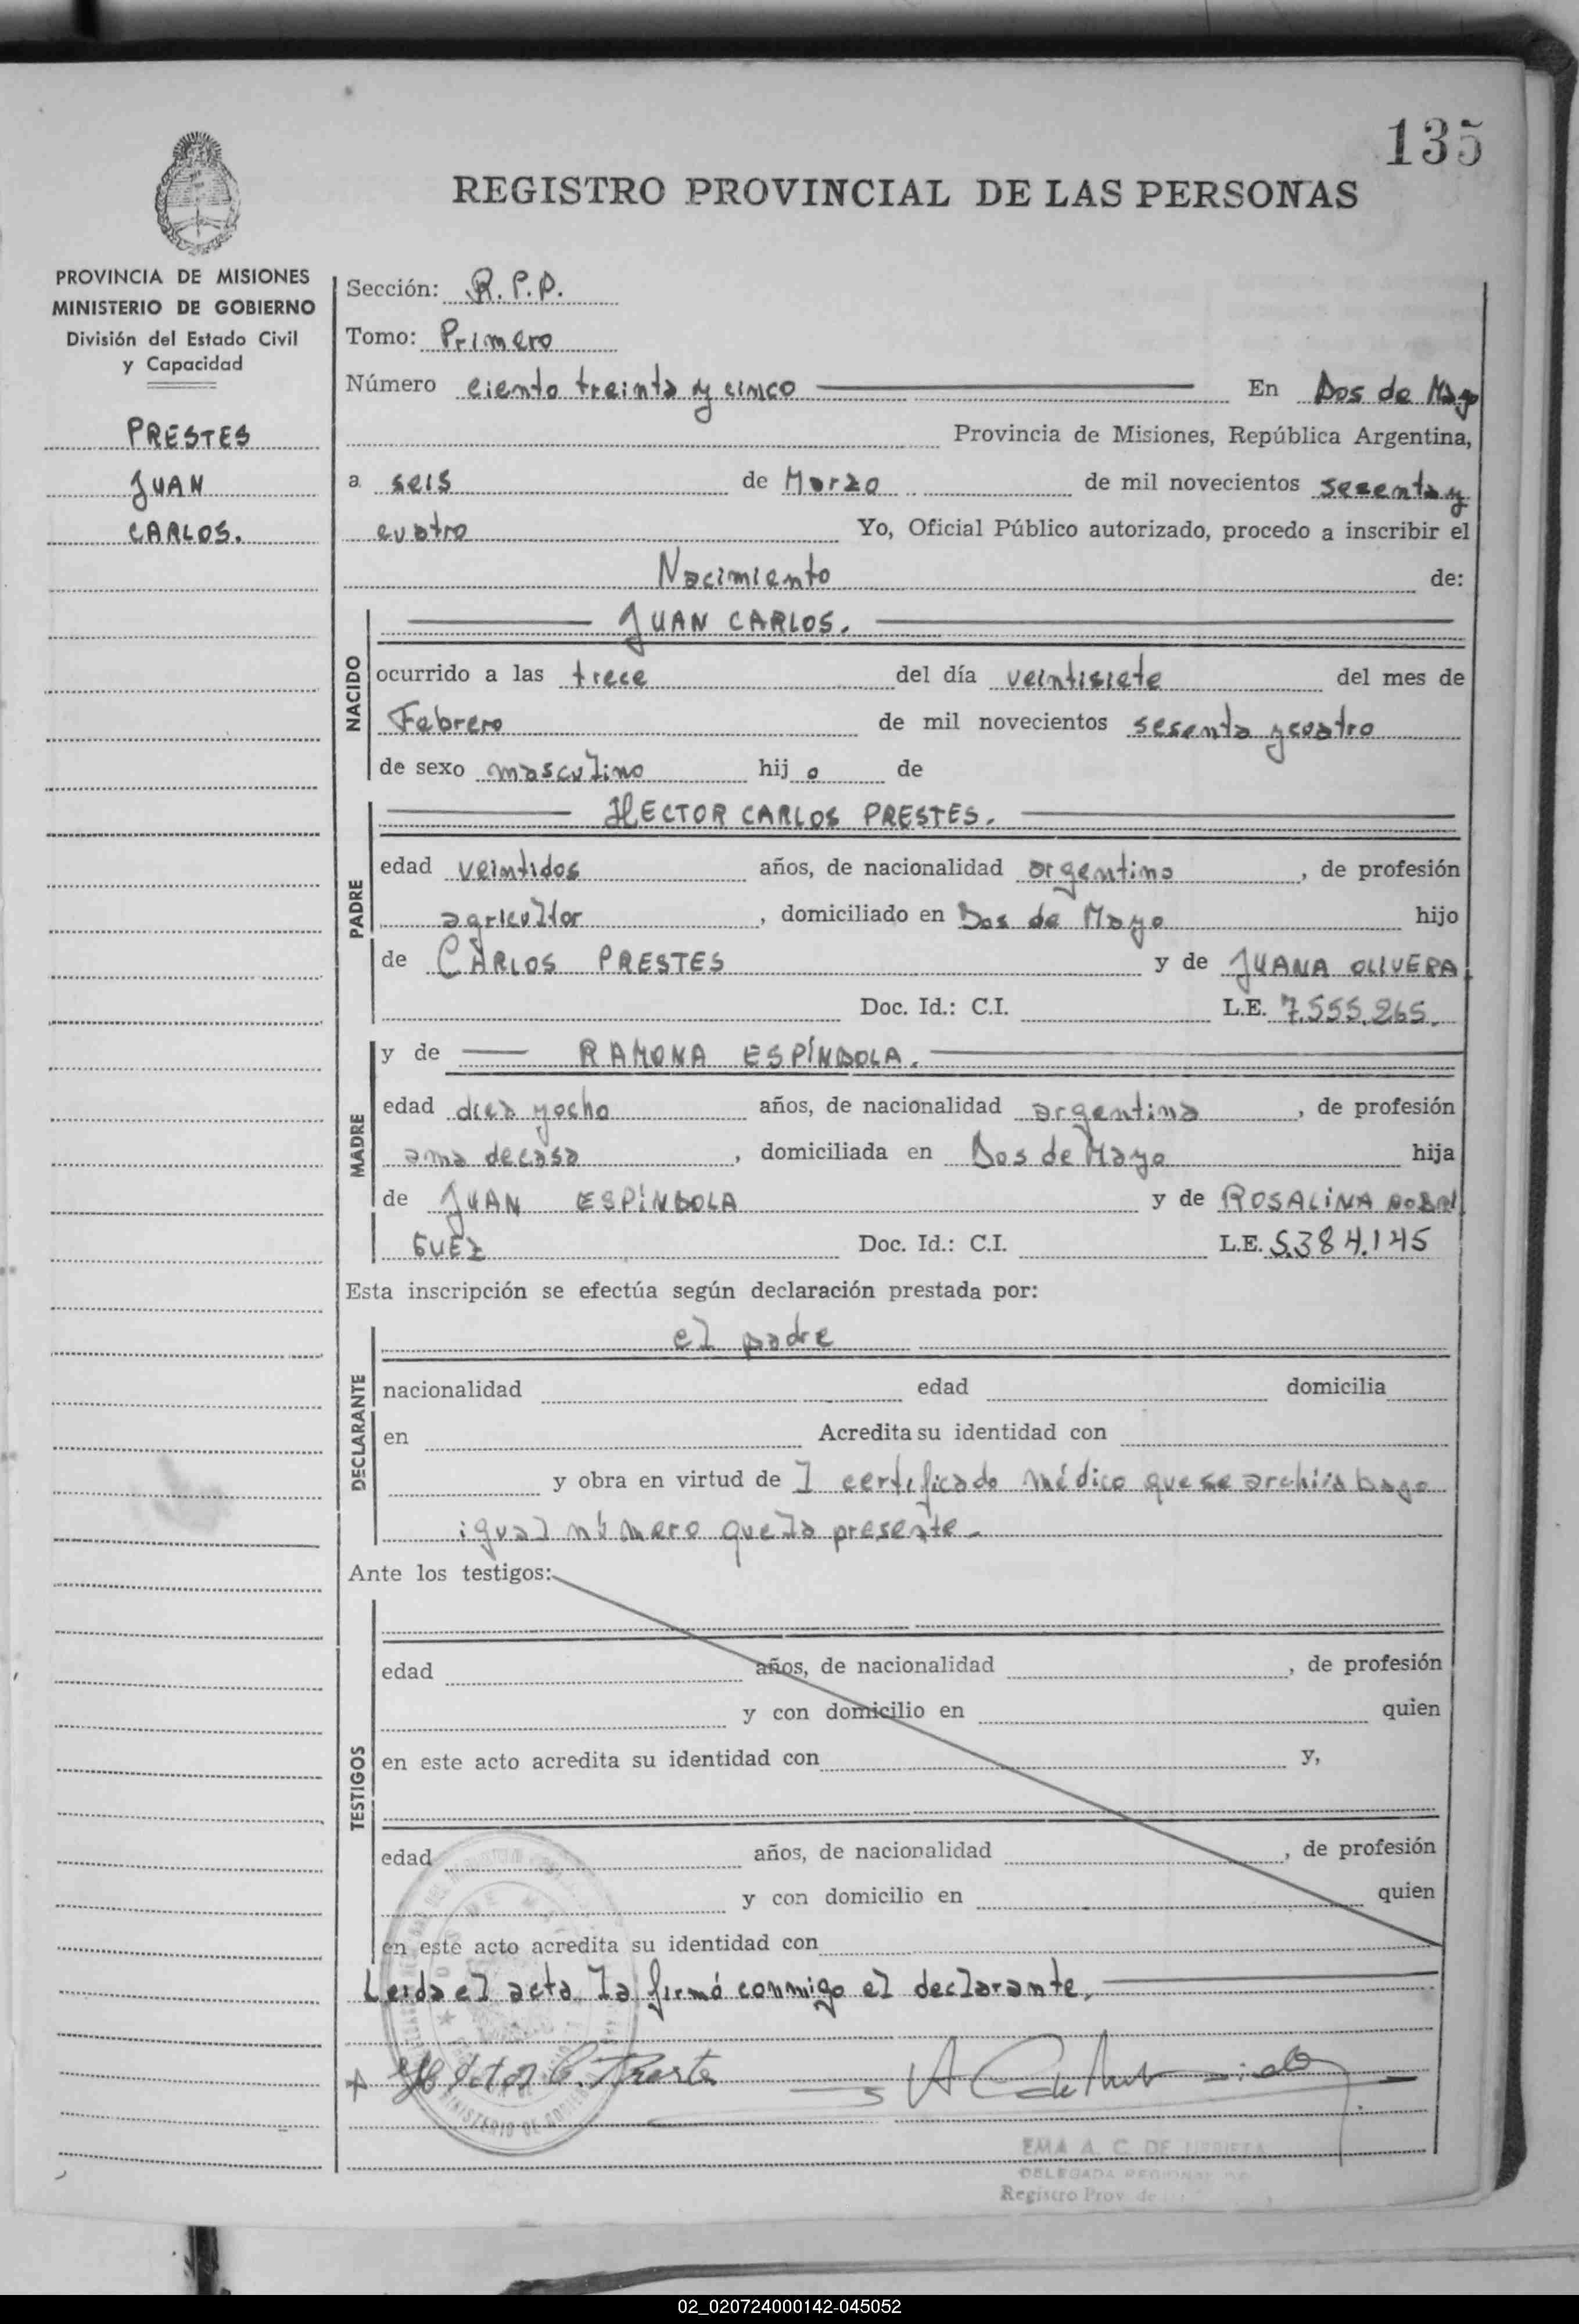 135
REGISTRO PROVINCIAL DE LAS PERSONAS
PROVINCIA DE MISIONES
MINISTERIO DE GOBIERNO
División del Estado Civil
y Capacidad
PRESTES
JUAN
CARLOS.
Sección: R.P.P.
Tomo: Primero
Número ciento treinta y cinco En Dos de Mayo
Provincia de Misiones, República Argentina,
a seis de Marzo de mil novecientos sesenta y
cuatro Yo, Oficial Público autorizado, procedo a inscribir el
Nacimiento de:
NACIDO
JUAN CARLOS.
ocurrido a las trece del día veintisiete del mes de
Febrero de mil novecientos sesenta y cuatro
de sexo masculino hijo de
PADRE
HECTOR CARLOS PRESTES.
edad veintidos años, de nacionalidad argentino, de profesión
agricultor, domiciliado en Dos de Mayo hijo
de CARLOS PRESTES y de JUANA OLIVERA
Doc. Id.: C.I. L.E. 7.555.265.
MADRE
y de RAMONA ESPÍNDOLA.
edad diez y ocho años, de nacionalidad argentina, de profesión
ama de casa, domiciliada en Dos de Mayo hija
de JUAN ESPÍNDOLA y de ROSALINA RODRI
GUEZ Doc. Id.: C.I. L.E. 5.384.145
Esta inscripción se efectúa según declaración prestada por:
DECLARANTE
el padre
nacionalidad edad domicilia
en Acredita su identidad con
y obra en virtud de l certificado médico que se archiva bajo
igual número que la presente.
Ante los testigos:
TESTIGOS
edad años, de nacionalidad , de profesión
y con domicilio en quien
en este acto acredita su identidad con y,
edad años, de nacionalidad , de profesión
y con domicilio en quien
en este acto acredita su identidad con
Leida el acta la firmó conmigo el declarante.
Hector C. Prestes
EMA A. C. DE URRIETA
DELEGADA REGIONAL
Registro Prov. de
02_020724000142-045052